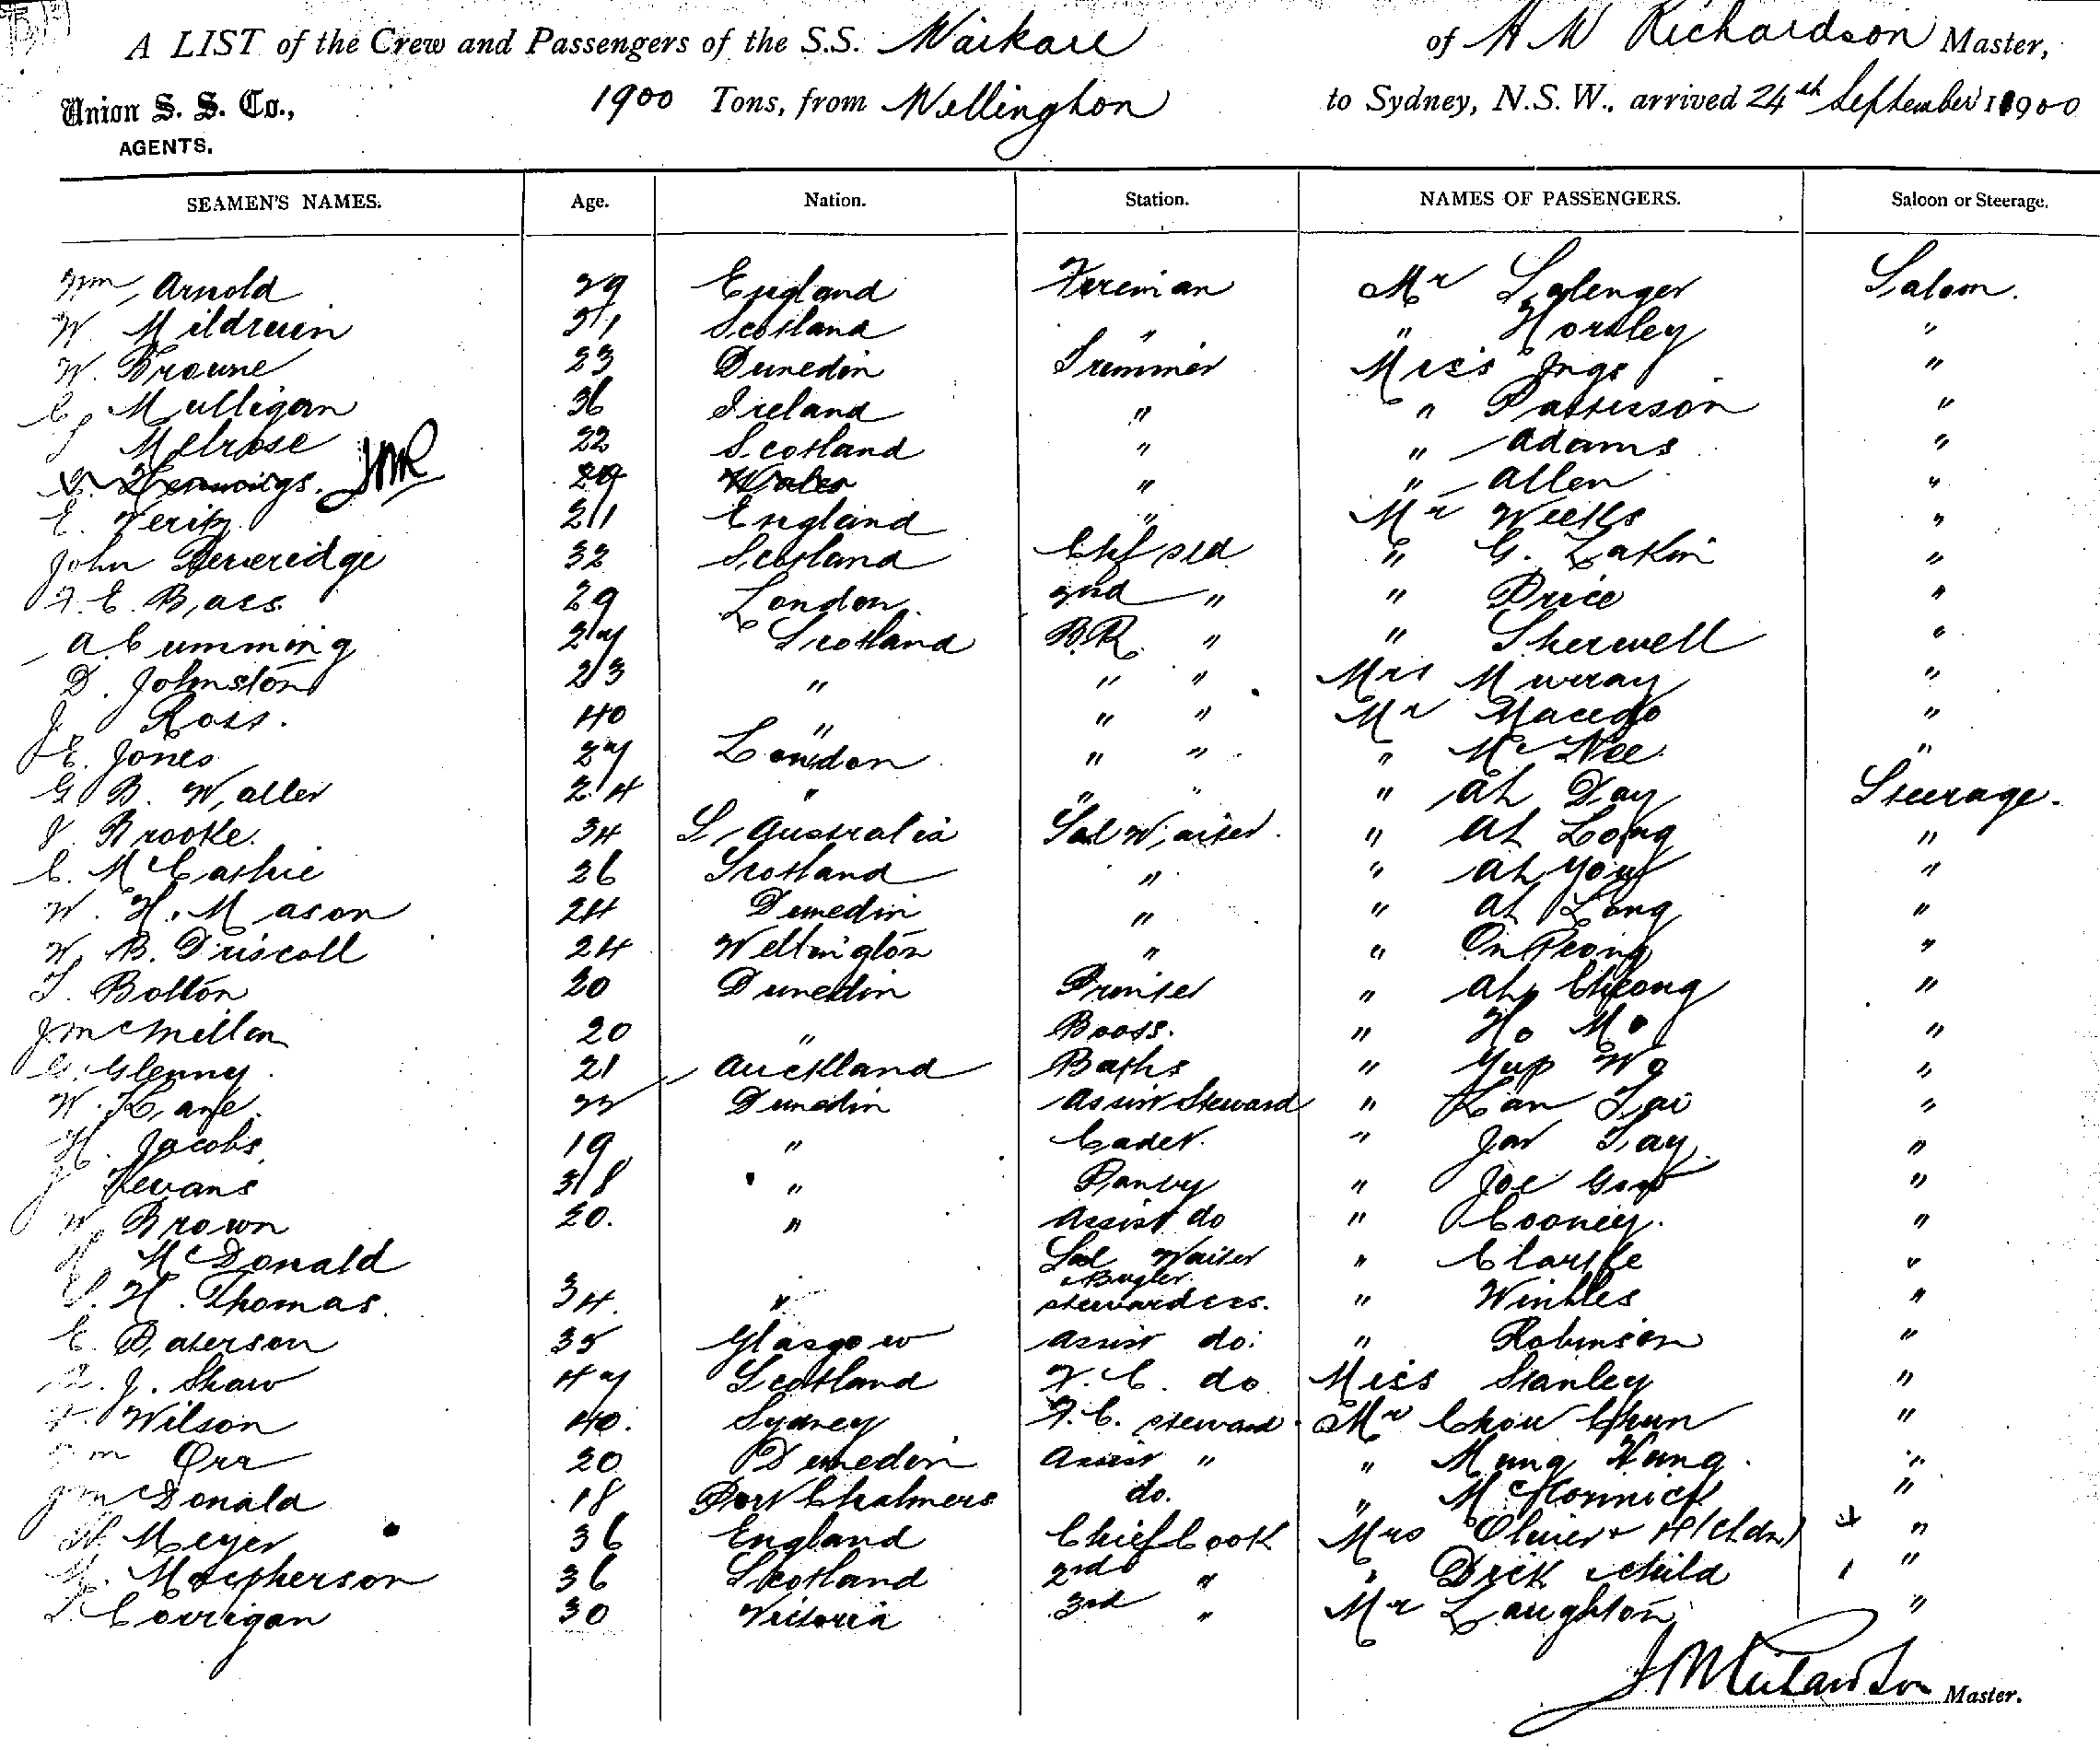 A LIST of the Crew and Passengers of the S.S. Waikare of A W Richardson Master,
Union S. S. Co., 1900 Tons, from Wellington to Sydney, N.S.W., arrived 24th September 1900
AGENTS.
SEAMEN'S NAMES. Age. Nation. Station. NAMES OF PASSENGERS. Saloon or Steerage.
Wm Arnold 29 England Fireman Mr Salenger Saloon.
W. Mildrum 31 Scotland " " Horsley "
W. Browne 23 Dunedin Trimmer Miss Ings "
C. Mulligan 36 Ireland " " Patterson "
Melrose 22 Scotland " " Adams "
Jennings. JWR 29 Wales " " Allen "
E. Verity 21 England " Mr Weeks "
John Beveridge 32 Scotland Chf std " G. Lakin "
F. E. Bass 29 London 2nd " " Price "
A. Cumming 27 Scotland B.R. " " Sherwell "
D. Johnston 23 " " " Mrs Murray "
J. Ross. 40 " " " Mr Macedo "
E. Jones 27 London " " " McNee "
G. B. Waller 24 " " " " Ah Day Steerage.
J. Brooke. 34 S. Australia Sal Waiter. " Ah Long "
C. McCaskie 26 Scotland " " Ah You "
W. H. Mason 24 Dunedin " " Ah Long "
W. B. Driscoll 24 Wellington " " On Peong "
T. Bolton 20 Dunedin Printer " Ah Cheong "
J McMillan 20 " Boots. " Ho Mo "
G. Glenny. 21 Auckland Baths " Yup Wo "
W. Kane. 22 Dunedin Assist Steward " Kan Tai "
H. Jacobs. 19 " Cadet. " Jar Tay "
J Bevans 38 " Pantry " Joe Goot "
W. Brown 20. " Assist do " Cooney. "
McDonald Sal Waiter " Clarke "
Bugler.
S. H. Thomas. 34. " stewardess. " Winkles "
E. Paterson 35 Glasgow Assist do. " Robinson "
J. Shaw 47 Scotland F. C. do Miss Stanley "
Wilson 40. Sydney F.C. steward Mr Chou Chun "
Wm Orr 20 Dunedin Assist " " Mung Hung. "
J McDonald 18 Port Chalmers do. " McCormick "
Meyer 36 England Chief Cook Mrs Olivier + 4 (chdn) "
Macpherson 36 Scotland 2nd " " Drek & child 1 "
Corrigan 30 Victoria 3rd " Mr Laughton "
A W Richardson Master.